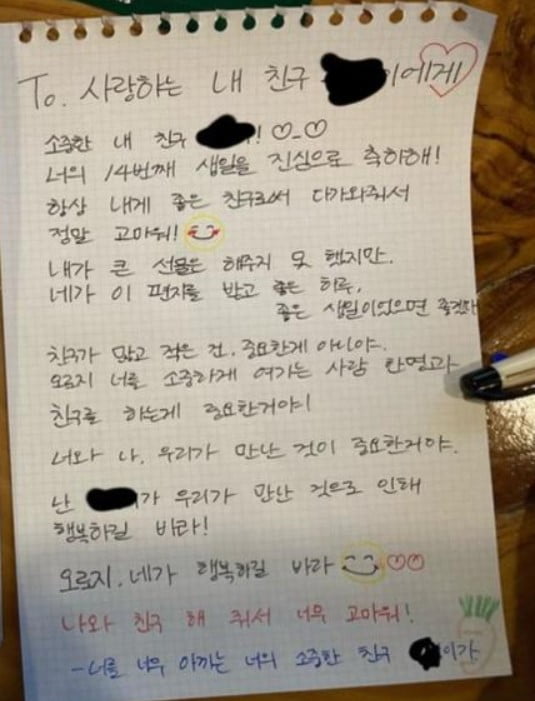 To. 사랑하는 내 친구 이에게
소중한 내 친구 ! ♡_♡
너의 14번째 생일을 진심으로 축하해!
항상 내게 좋은 친구로써 다가와줘서
정말 고마워!
내가 큰 선물은 해주지 못 했지만.
네가 이 편지를 받고 좋은 하루,
좋은 생일이었으면 좋겠어
친구가 많고 적은 건. 중요한게 아니야.
오로지 너를 소중하게 여기는 사람 한명과
친구를 하는게 중요한거야!
너와 나. 우리가 만난 것이 중요한거야.
난 가 우리가 만난 것으로 인해
행복하길 바라!
오로지. 네가 행복하길 바라 ♡♡
나와 친구 해 줘서 너무 고마워!
-너를 너무 아끼는 너의 소중한 친구 이가